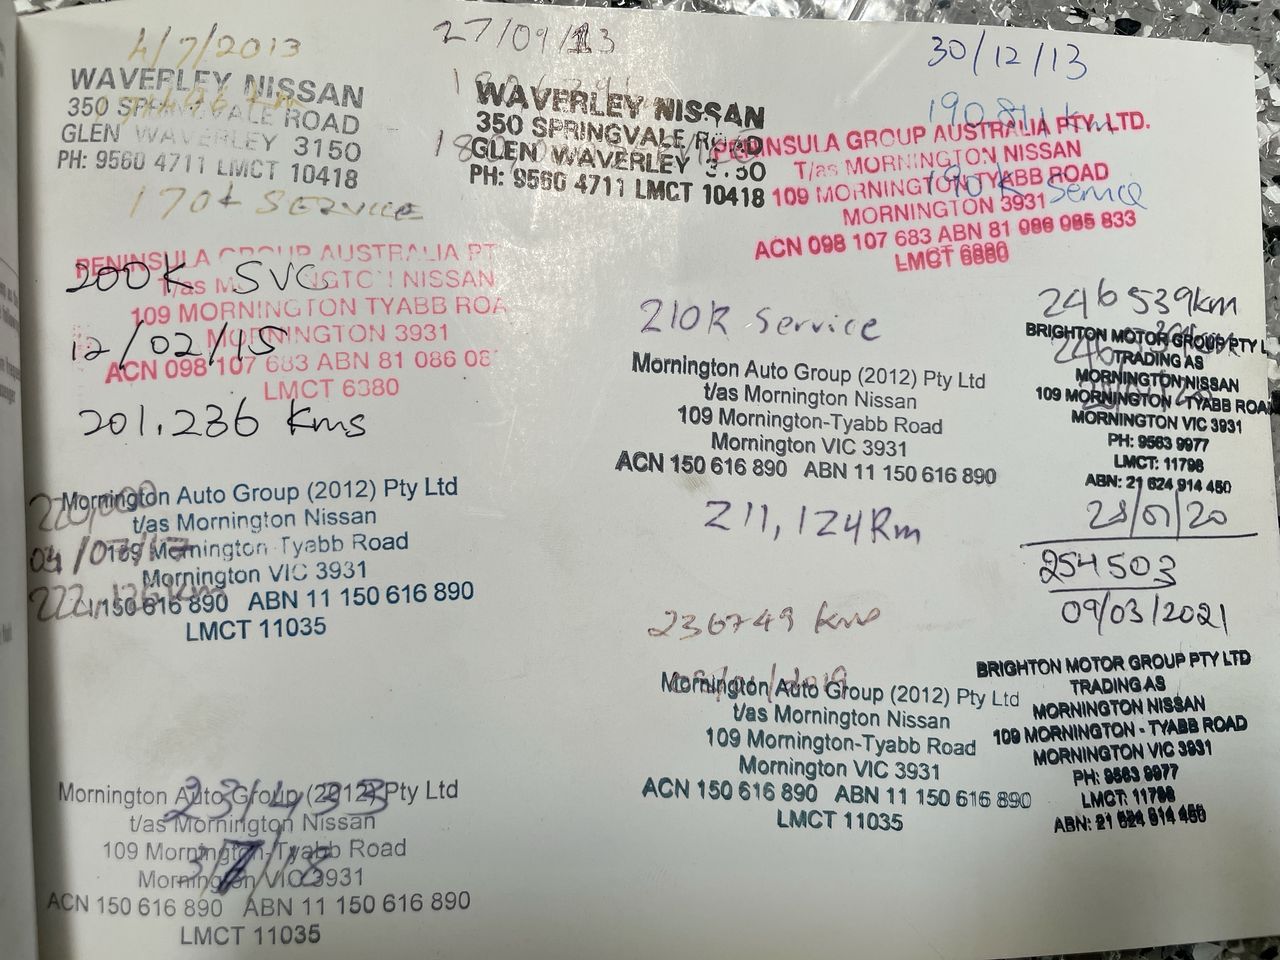 4/7/2013
WAVERLEY NISSAN
350 SPRINGVALE ROAD
GLEN WAVERLEY 3150
PH: 9560 4711 LMCT 10418
170k SERVICE
27/09/13
WAVERLEY NISSAN
350 SPRINGVALE ROAD
GLEN WAVERLEY 3150
PH: 9560 4711 LMCT 10418
30/12/13
190 811 km
PENINSULA GROUP AUSTRALIA PTY. LTD.
T/as MORNINGTON NISSAN
109 MORNINGTON TYABB ROAD
190 K Service
MORNINGTON 3931
ACN 098 107 683 ABN 81 086 085 833
LMCT 6880
PENINSULA GROUP AUSTRALIA PT
200K SVC
T/as MORNINGTON NISSAN
109 MORNINGTON TYABB ROA
12/02/15
MORNINGTON 3931
ACN 098 107 683 ABN 81 086 08
LMCT 6380
201.236 kms
210K service
Mornington Auto Group (2012) Pty Ltd
t/as Mornington Nissan
109 Mornington-Tyabb Road
Mornington VIC 3931
ACN 150 616 890 ABN 11 150 616 890
211,124Km
246 539km
BRIGHTON MOTOR GROUP PTY L
TRADING AS
MORNINGTON NISSAN
109 MORNINGTON - TYABB ROA
MORNINGTON VIC 3931
PH: 9563 9977
LMCT: 11798
ABN: 21 624 914 450
28/01/20
254503
09/03/2021
BRIGHTON MOTOR GROUP PTY LTD
TRADING AS
MORNINGTON NISSAN
109 MORNINGTON - TYABB ROAD
MORNINGTON VIC 3931
PH: 9563 9977
LMCT: 11798
ABN: 21 624 914 450
220,000
Mornington Auto Group (2012) Pty Ltd
t/as Mornington Nissan
109 Mornington-Tyabb Road
Mornington VIC 3931
150 616 890 ABN 11 150 616 890
LMCT 11035
236749 kms
Mornington Auto Group (2012) Pty Ltd
t/as Mornington Nissan
109 Mornington-Tyabb Road
Mornington VIC 3931
ACN 150 616 890 ABN 11 150 616 890
LMCT 11035
Mornington Auto Group (2012) Pty Ltd
t/as Mornington Nissan
109 Mornington-Tyabb Road
3/7/18
Mornington VIC 3931
ACN 150 616 890 ABN 11 150 616 890
LMCT 11035